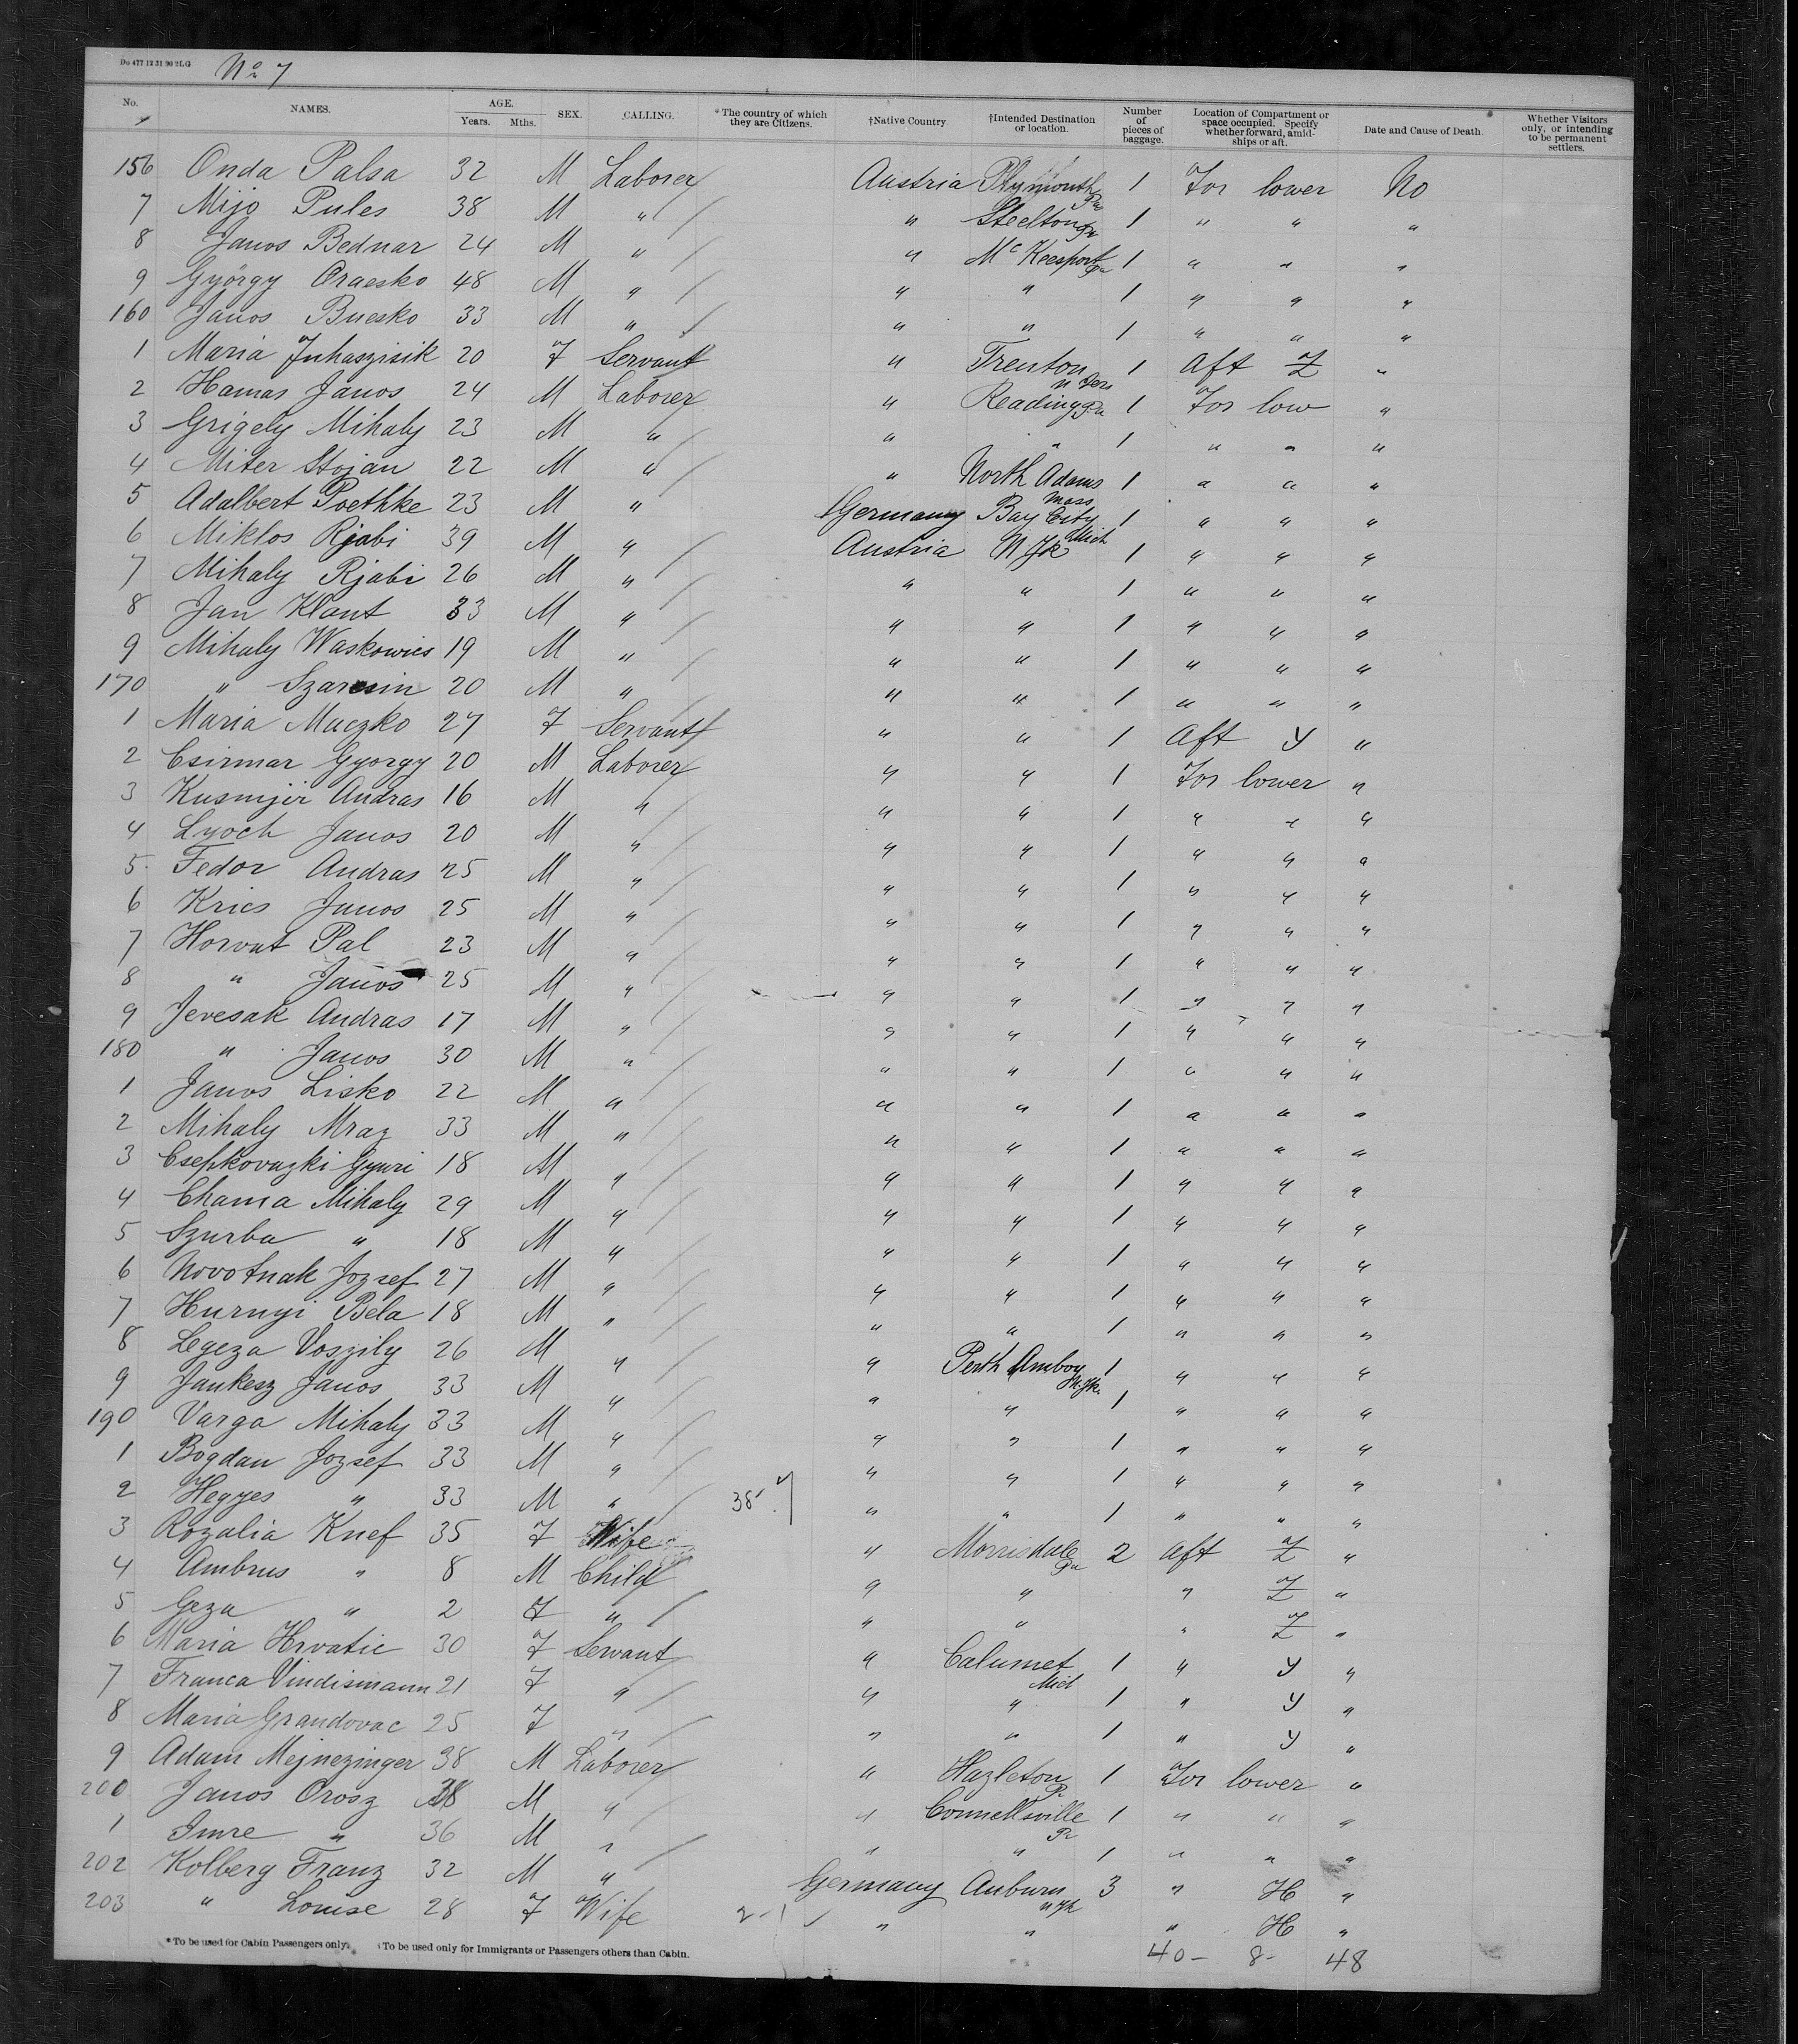 Do 477 12 31 90 2LG No 7
No. NAMES. AGE. Years. Mths. SEX. CALLING. * The country of which they are Citizens. †Native Country. †Intended Destination or location. Number of pieces of baggage. Location of Compartment or space occupied. Specify whether forward, amid-ships or aft. Date and Cause of Death. Whether Visitors only, or intending to be permanent settlers.
156 Onda Palsa 32 M Laborer Austria Plymouth Pa 1 For lower No
7 Mijo Pules 38 M " " Steelton Pa 1 " " "
8 Janos Bednar 24 M " " Mc Keesport Pa 1 " " "
9 György Oraesko 48 M " " " 1 " " "
160 Janos Buesko 33 M " " " 1 " " "
1 Maria Juhaszisik 20 F Servant " Trenton N Jers 1 Aft Z "
2 Hamas Janos 24 M Laborer " Reading Pa 1 For low "
3 Grigely Mihaly 23 M " " " 1 " " "
4 Miter Stojan 22 M " " North Adams Mass 1 " " "
5 Adalbert Poethke 23 M " Germany Bay City Mich 1 " " "
6 Miklos Rjabi 39 M " Austria N Yk 1 " " "
7 Mihaly Rjabi 26 M " " " 1 " " "
8 Jan Klant 33 M " " " 1 " " "
9 Mihaly Waskowics 19 M " " " 1 " " "
170 " 20 M " " " 1 " " "
1 Maria Maczko 27 F Servant " " 1 Aft Y "
2 Csirmar Gyorgy 20 M Laborer " " 1 For lower "
3 Kusmjir Andras 16 M " " " 1 " " "
4 Lyoch Janos 20 M " " " 1 " " "
5 Fedor Andras 25 M " " " 1 " " "
6 Krics Janos 25 M " " " 1 " " "
7 Horvat Pal 23 M " " " 1 " " "
8 " Janos 25 M " " " 1 " " "
9 Jevesak Andras 17 M " " " 1 " " "
180 " Janos 30 M " " " 1 " " "
1 Janos Lisko 22 M " " " 1 " " "
2 Mihaly Mraz 33 M " " " 1 " " "
3 Csepkovazki Gyuri 18 M " " " 1 " " "
4 Chama Mihaly 29 M " " " 1 " " "
5 Szurba " 18 M " " " 1 " " "
6 Novotnak Jozsef 27 M " " " 1 " " "
7 Hurnyi Bela 18 M " " " 1 " " "
8 Legeza Voszily 26 M " " Perth Amboy N. Yk. 1 " " "
9 Jankesz Janos 33 M " " " 1 " " "
190 Varga Mihaly 33 M " " " 1 " " "
1 Bogdan Jozsef 33 M " " " 1 " " "
2 Hegyes " 33 M " 38 " " 1 " " "
3 Rozalia Knef 35 F Wife " Morrisdale Pa 2 Aft Z "
4 Ambrus " 8 M Child " " " Z "
5 Geza " 2 F " " " " Z "
6 Maria Hrvatic 30 F Servant " Calumet Mich 1 " Y "
7 Franca Vindismann 21 F " " " 1 " Y "
8 Maria Grandovac 25 F " " " 1 " Y "
9 Adam Mejnezinger 38 M Laborer " Hazleton Pa 1 For lower "
200 Janos Orosz 38 M " " Connellsville Pa 1 " " "
1 Imre " 36 M " " " 1 " " "
202 Kolberg Franz 32 M " Germany Auburn N Yk 3 " H "
203 " Louise 28 F Wife 2 - 1 " " " H "
* To be used for Cabin Passengers only. †To be used only for Immigrants or Passengers others than Cabin. 40 - 8 - 48